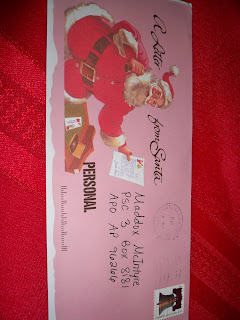 A Letter from Santa
PERSONAL
Maddox McIntyre
PSC 3 Box 8181
APO AP 96266